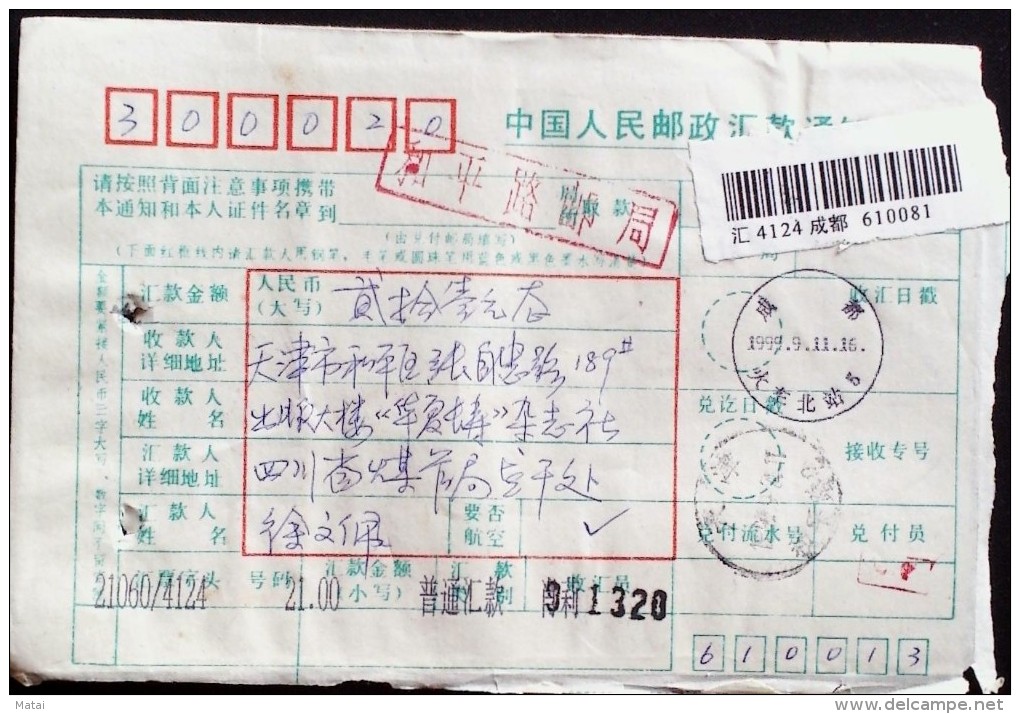 300020
中国人民邮政汇款通知
汇4124 成都 610081
和平路邮局
请按照背面注意事项携带
本通知和本人证件名章到
取款
(由兑付邮局填写)
(下面红框线内请汇款人用钢笔、毛笔或圆珠笔用蓝色或黑色墨水填写)
汇款金额 人民币(大写) 贰拾壹元正
收汇日戳
成都
1999.9.11.16.
火车北站
收款人详细地址 天津市和平区张自忠路189#
兑讫日戳
收款人姓名 出版大楼《华夏》杂志社
接收专号
汇款人详细地址 四川省煤管局老干处
汇款人姓名 徐文佩 要否航空 ✓
兑付流水号 兑付员
号码 汇款金额(小写) 收汇员
21060/4124 21.00 普通汇款 1320
610013
Matai
delcampe.net